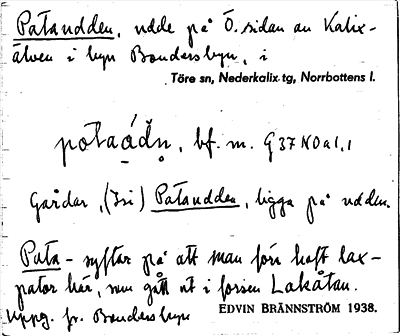 Pataudden, udde på Ö. sidan av Kalix-
älven i byn Bondersbyn, i
Töre sn, Nederkalix tg, Norrbottens l.
bf. m. G37 NO a 1,1
Gårdar, (3 i) Pataudden, ligga på udden.
Pata- syftar på att man förr haft lax-
pator här, men gått ut i forsen Lakåtan.
Uppg. fr. Bondersbyn
EDVIN BRÄNNSTRÖM 1938.